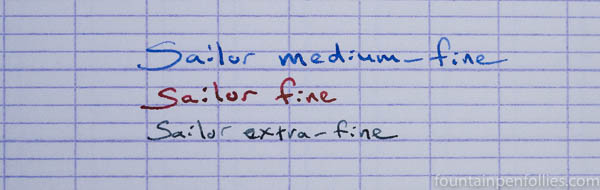 Sailor medium-fine
Sailor fine
Sailor extra-fine
fountainpenfollies.com